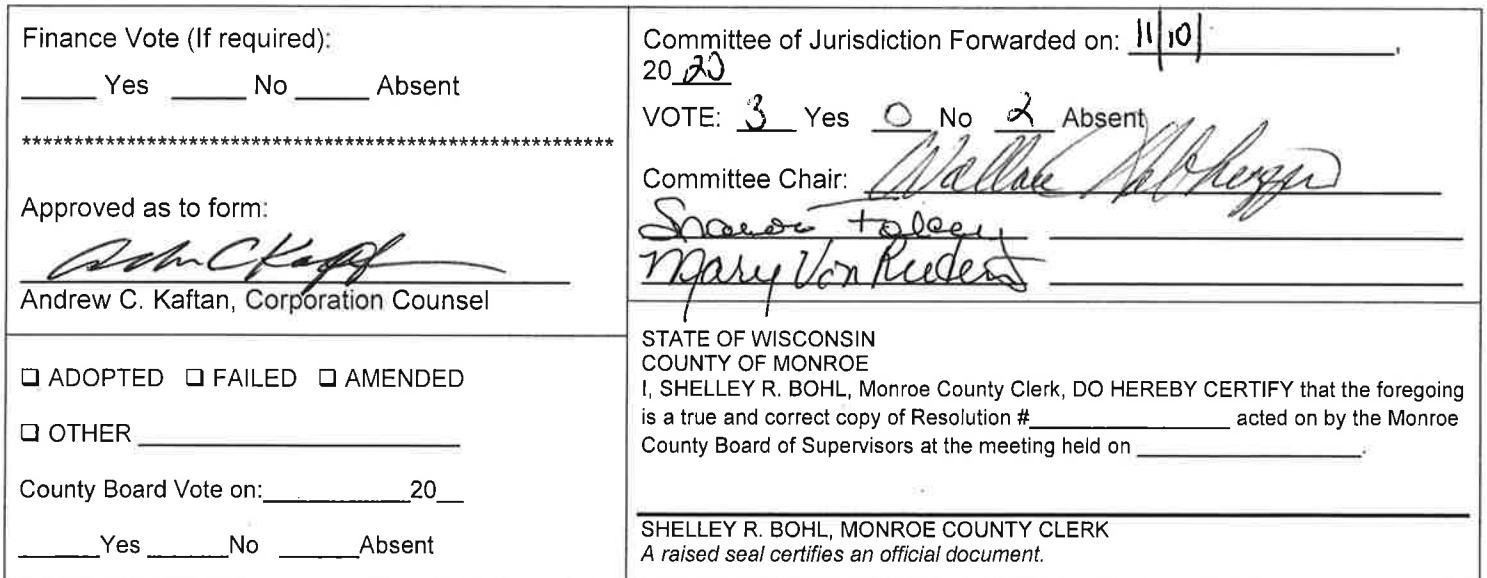 Finance Vote (If required):
_____ Yes _____ No _____ Absent
*********************************************************
Approved as to form:
Andrew C. Kaftan, Corporation Counsel
❑ ADOPTED ❑ FAILED ❑ AMENDED
❑ OTHER _____________________
County Board Vote on:__________20__
_____Yes _____No _____Absent
Committee of Jurisdiction Forwarded on: 11/10/ ,
20 20
VOTE: 3 Yes 0 No 2 Absent
Committee Chair: Wallace Habhegger
Sharon Folcey
Mary Von Ruden
STATE OF WISCONSIN
COUNTY OF MONROE
I, SHELLEY R. BOHL, Monroe County Clerk, DO HEREBY CERTIFY that the foregoing
is a true and correct copy of Resolution #______________ acted on by the Monroe
County Board of Supervisors at the meeting held on ________________.
SHELLEY R. BOHL, MONROE COUNTY CLERK
A raised seal certifies an official document.